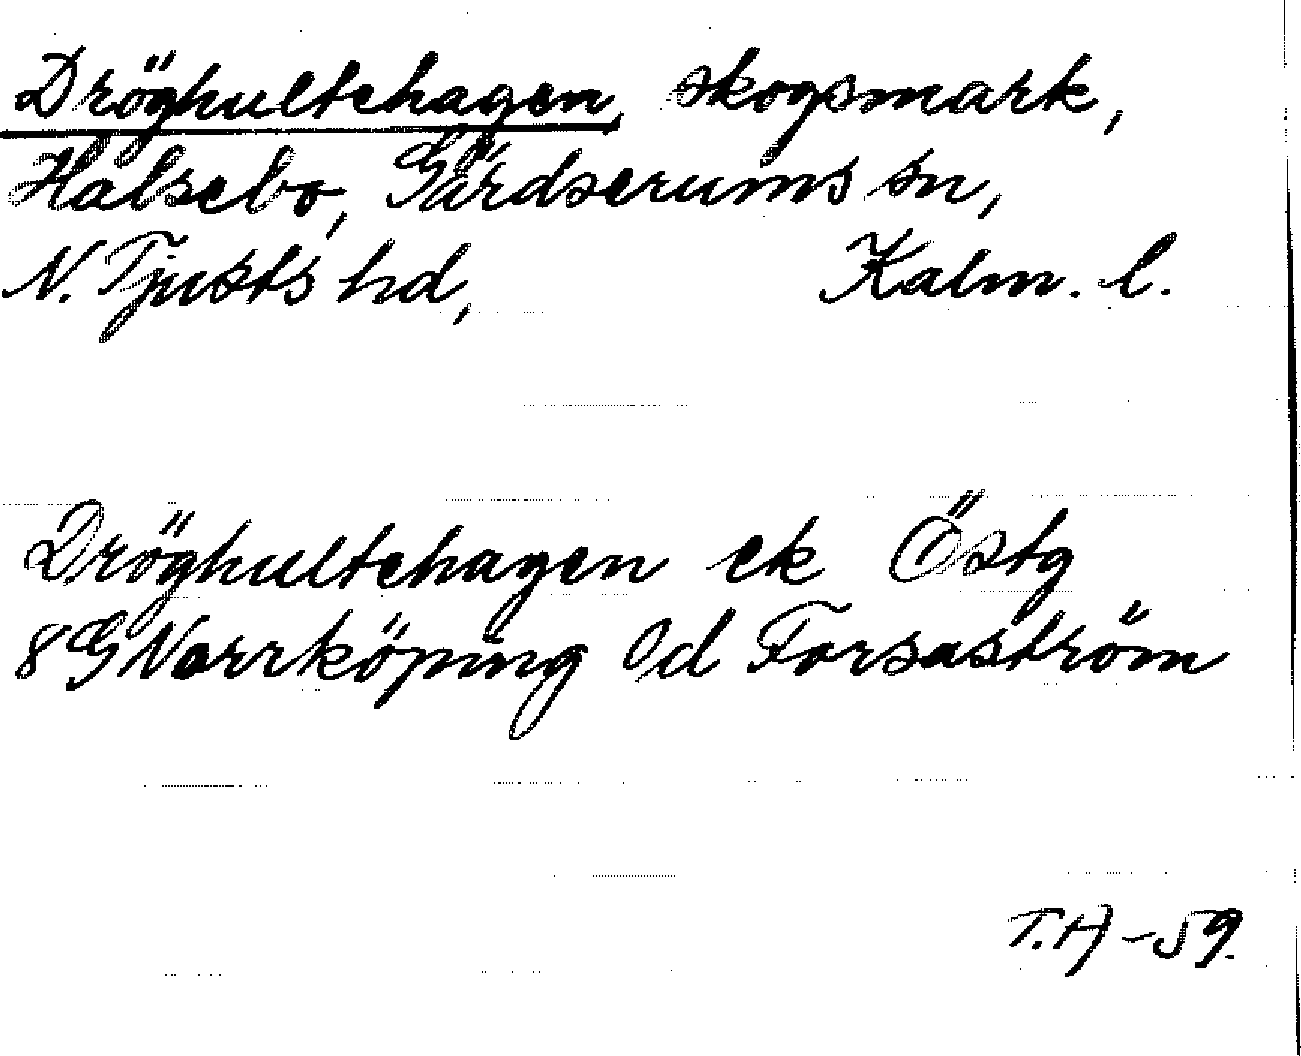 Dröghultehagen, skogsmark,
Hälsebo, Gärdserums sn,
N. Tjusts hd, Kalm. l.
Dröghultehagen ek Östg
8G Norrköping Od Forsaström
T.H -59.